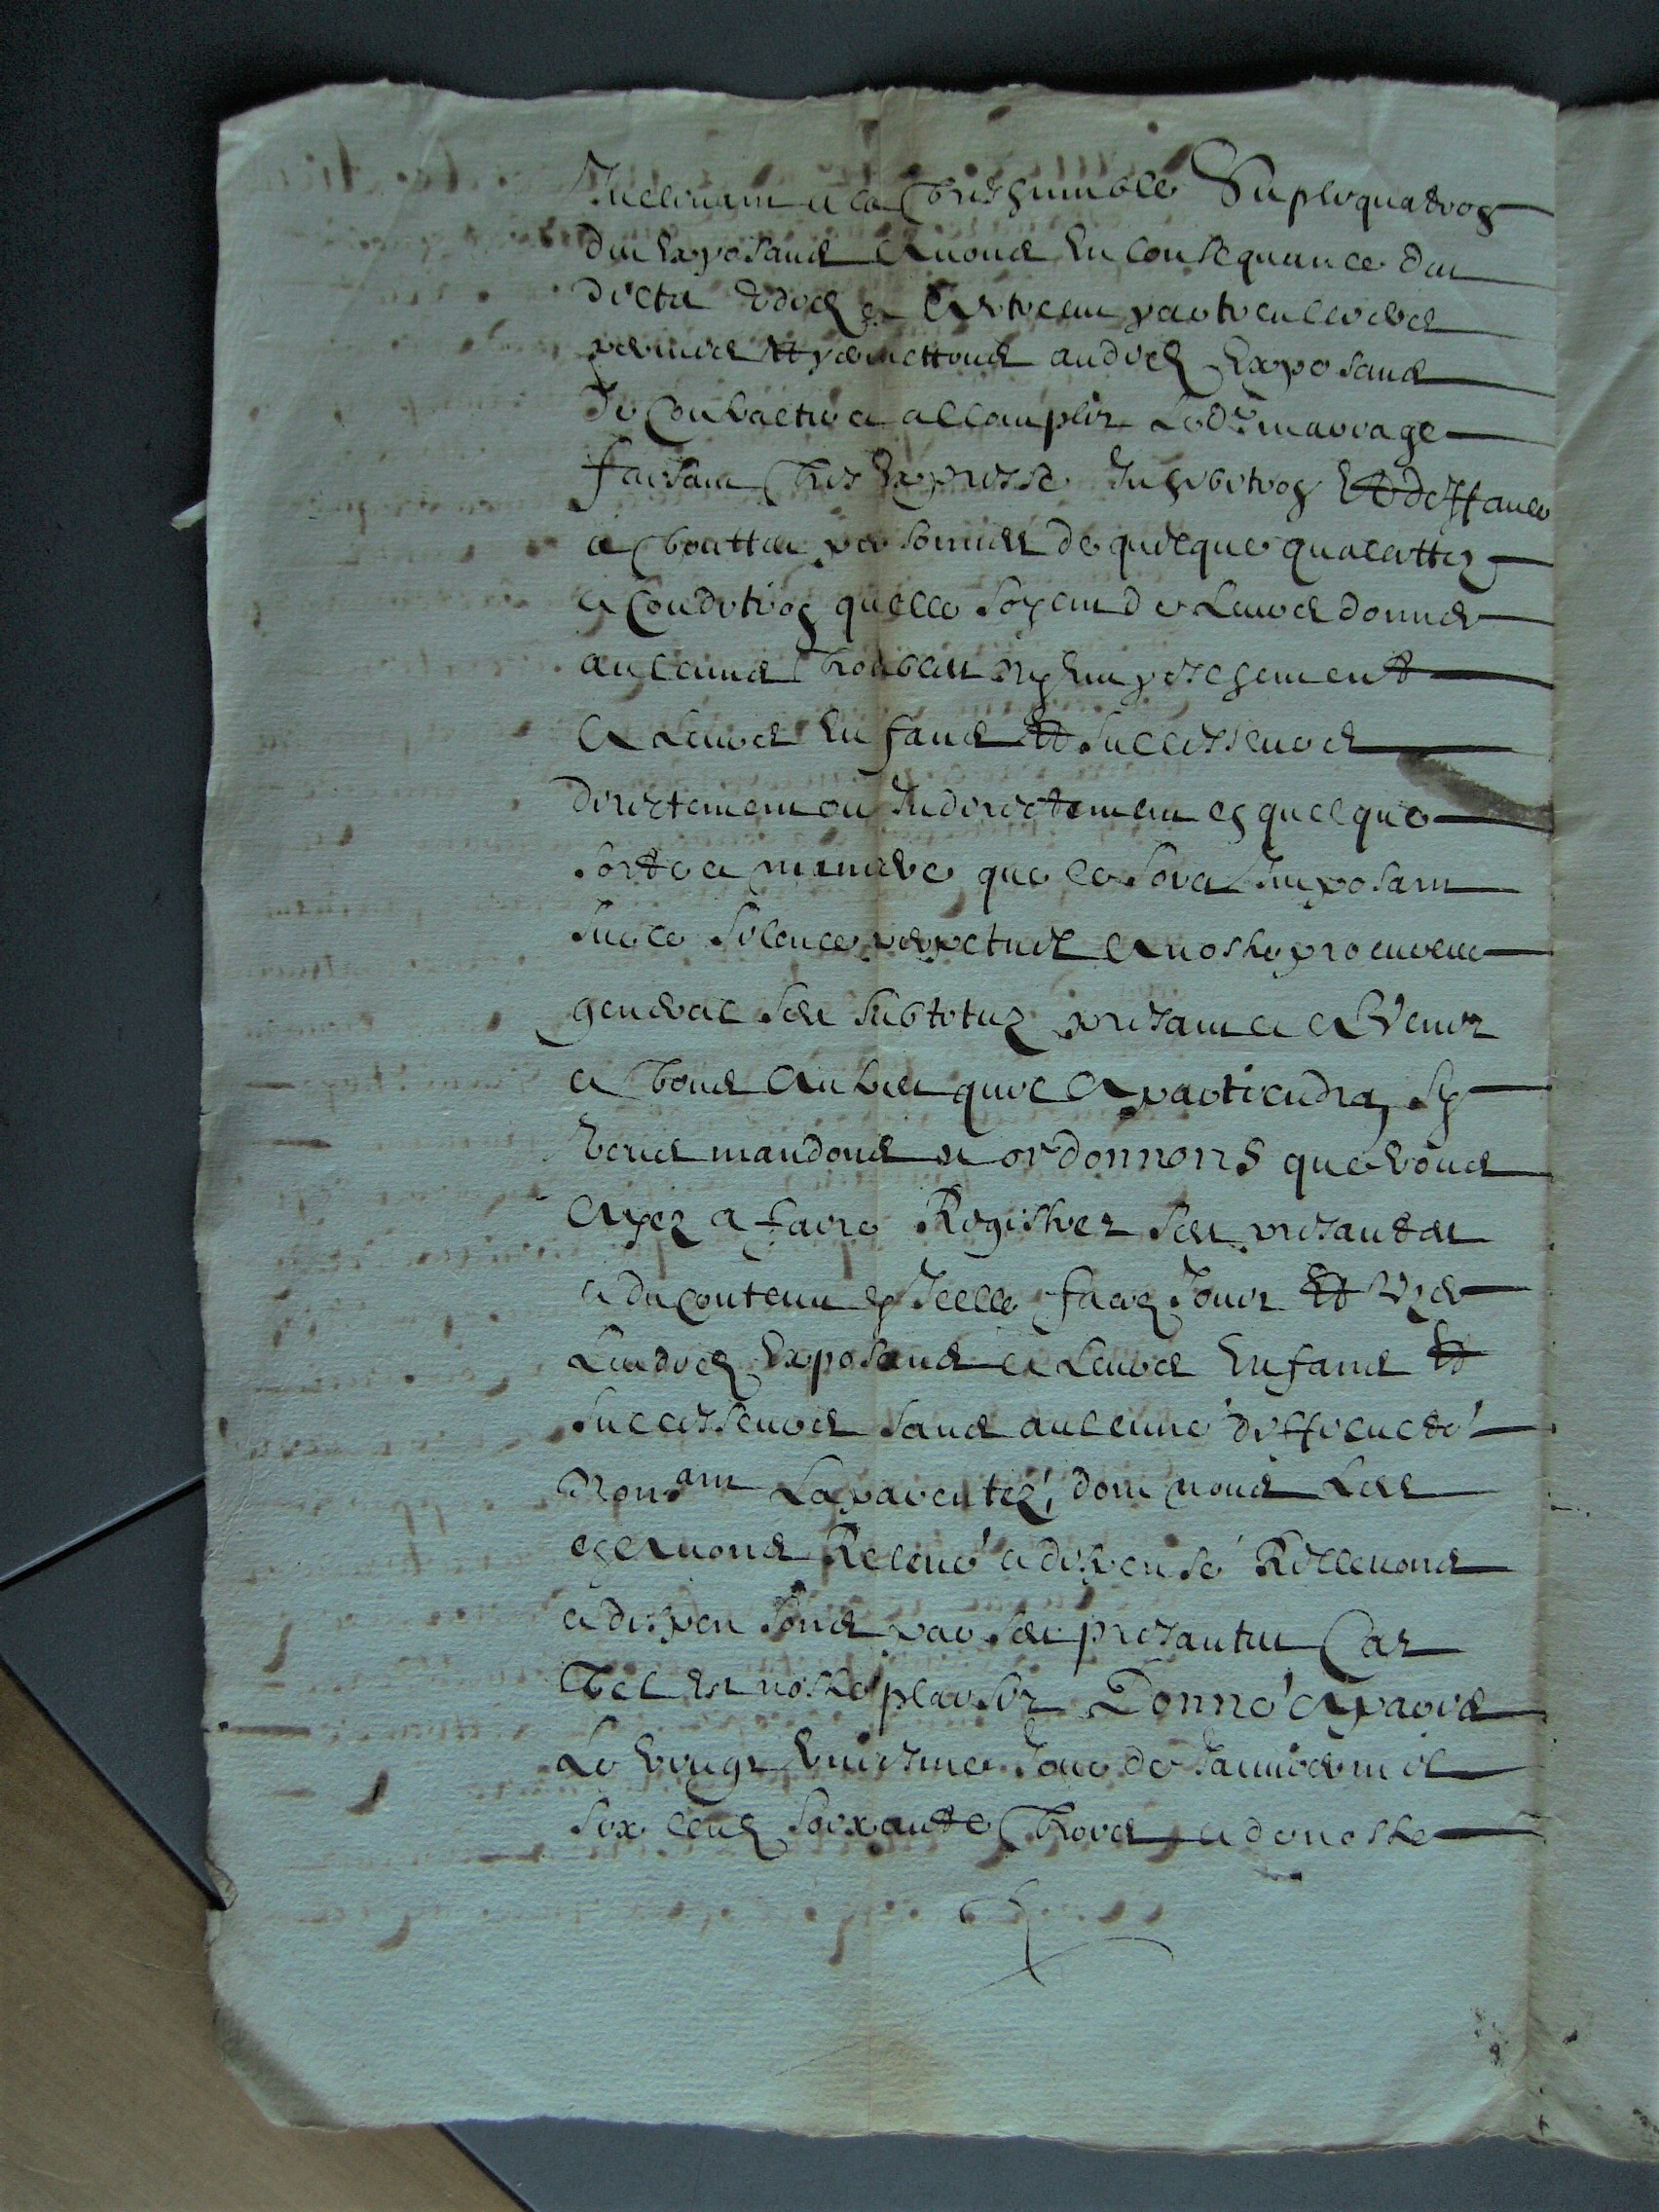 Inclinant a la tres humble Supliquation
des Exposans Avons En Consequance des
dicts Edicts et Articles particuliers
permis Et permettons ausdicts Exposans
de Contracter et accomplir Ledt mariage
faisant tres Expresse Inhibition Et deffance
a touttes personnes de quelque quallittez
et Condition quelle soyent de Leurs donner
aulcuns troubles ny Empeschement
A Leurs Enfans Et successeurs
directement ou Indirectement en quelque
sorte et maniere que ce soit Imposant
sur ce silence perpetuel A nostre procureur
general ses subtituz presant et A Venir
et tous Autres quil Apartiendra, Sy
Vous mandons et ordonnons que vous
Ayez a faire Registrer ses presantes
et du contenu en Icelle faire Jouir Et Vzer
Lesdicts Exposans et Leurs Enfans Et
successeurs sans aulcune difficulté
Non.ant La parentéz, dont nous Les
en Avons Relevé et dispensé Rellevons
et dispensons par ses presantes Car
tel Est nostre plaisir Donné A paris
Le vingt huictiesme Jour de Janvier mil
six cens soixante trois et de nostre